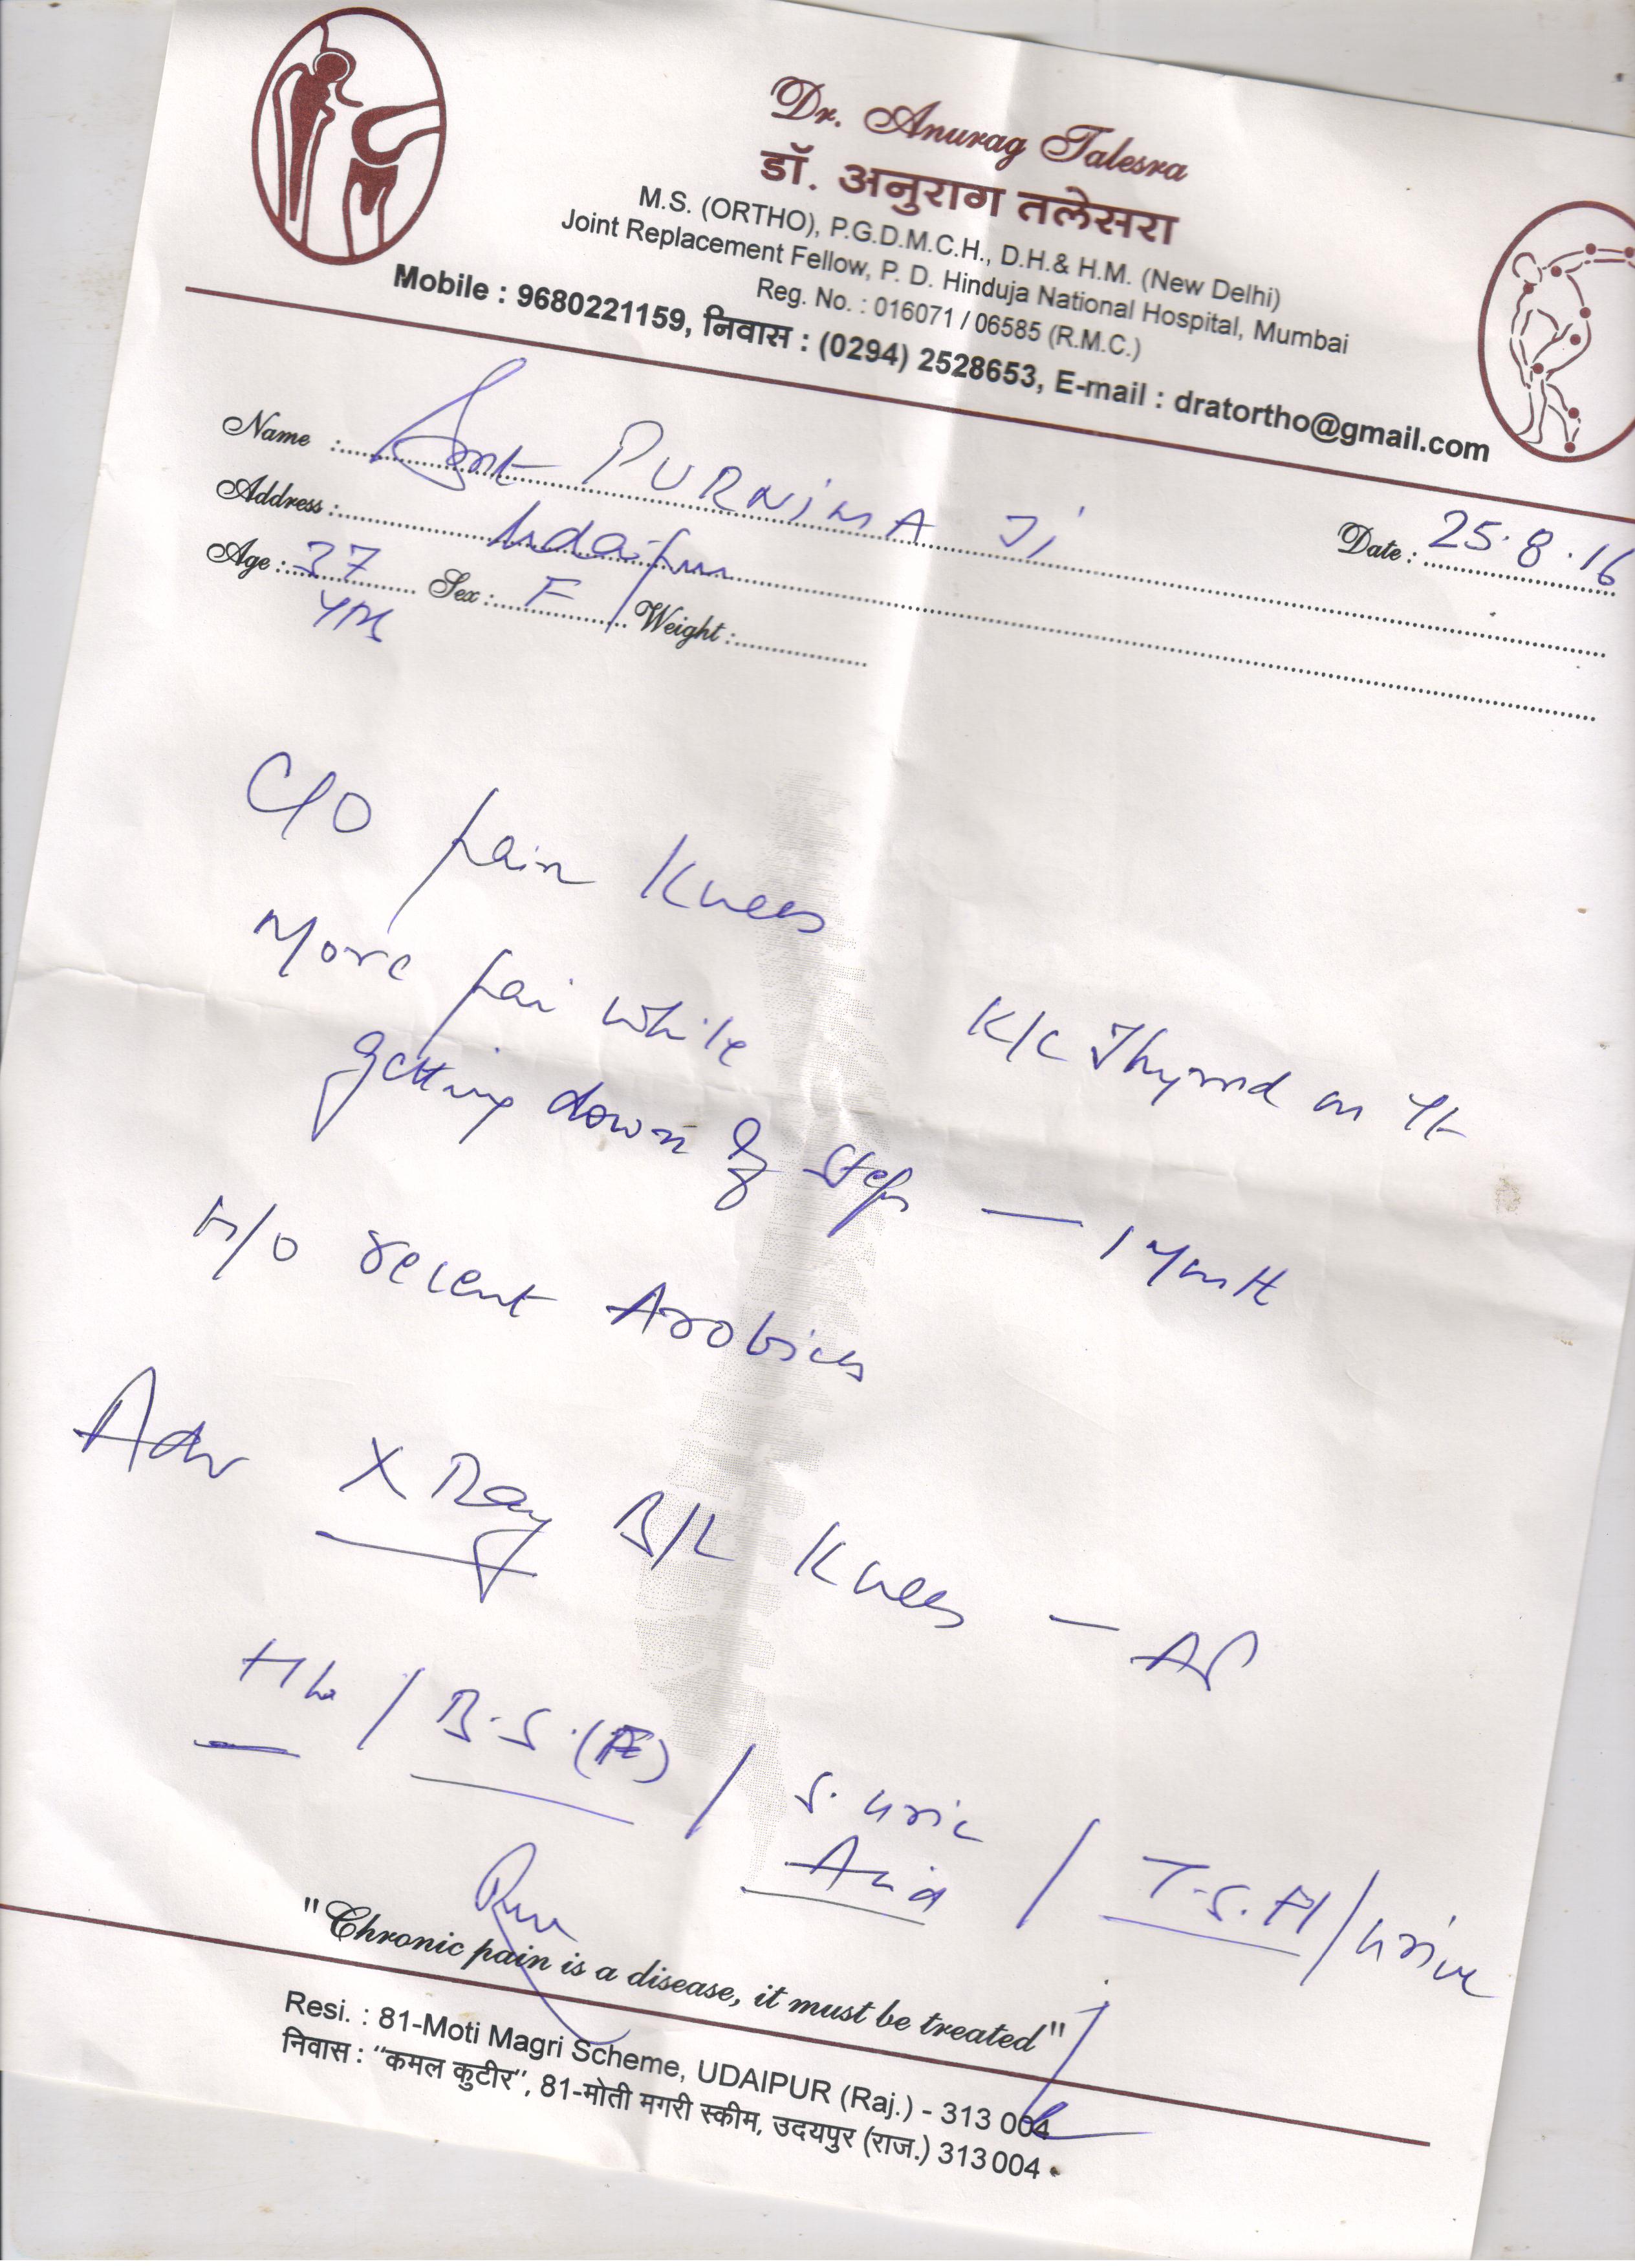 Dr. Anurag Talesra
डॉ. अनुराग तलेसरा
M.S. (ORTHO), P.G.D.M.C.H., D.H.& H.M. (New Delhi)
Joint Replacement Fellow, P. D. Hinduja National Hospital, Mumbai
Reg. No. : 016071 / 06585 (R.M.C.)
Mobile : 9680221159, निवास : (0294) 2528653, E-mail : dratortho@gmail.com
Name : Smt PURNIMA Ji
Date : 25.8.16
Address : Udaipur
Age : 37 Yrs Sex : F Weight :
C/O pain Knees
More pai while
K/C Thyroid on
getting down of steps — 1 Month
H/O recent Arobics
Adv X Ray B/L Knees — AP
Hb / B.S.(F) / S. Uric / T.S.H / Urine
Acid
"Chronic pain is a disease, it must be treated"
Resi. : 81-Moti Magri Scheme, UDAIPUR (Raj.) - 313 004
निवास : “कमल कुटीर”, 81-मोती मगरी स्कीम, उदयपुर (राज.) 313004